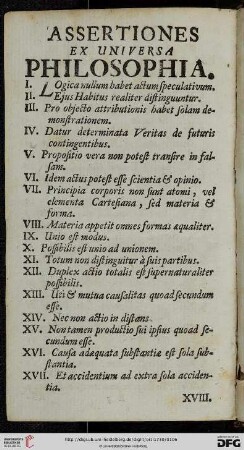 ASSERTIONES
EX UNIVERSA
PHILOSOPHIA.
I. LOgica nullum habet actum speculativum.
II. Ejus Habitus realiter distinguuntur.
III. Pro objecto attributionis habet solam de-
monstrationem.
IV. Datur determinata Veritas de futuris
contingentibus.
V. Propositio vera non potest transire in fal-
sam.
VI. Idem actus potest esse scientia & opinio.
VII. Principia corporis non sunt atomi, vel
elementa Cartesiana, sed materia &
forma.
VIII. Materia appetit omnes formas æqualiter.
IX. Unio est modus.
X. Possibilis est unio ad unionem.
XI. Totum non distinguitur à suis partibus.
XII. Duplex actio totalis est supernaturaliter
possibilis.
XIII. Uti & mutua causalitas quoad secundum
esse.
XIV. Nec non actio in distans.
XV. Non tamen productio sui ipsius quoad se-
cundum esse.
XVI. Causa adæquata substantiæ est sola sub-
stantia.
XVII. Et accidentium ad extra sola acciden-
tia.
XVIII.